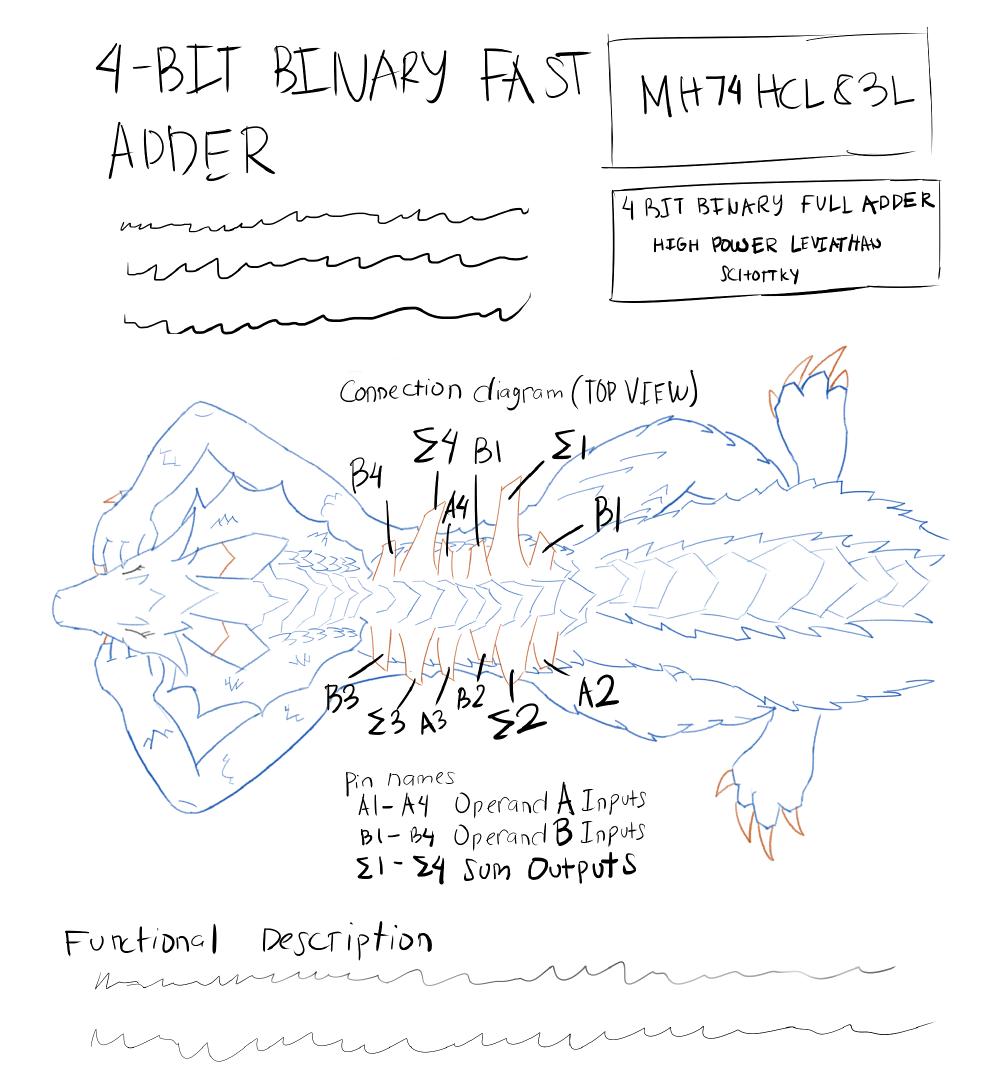 4-BIT BINARY FAST
ADDER
MH74HCL83L
4 BIT BINARY FULL ADDER
HIGH POWER LEVIATHAN
SCHOTTKY
Connection diagram (TOP VIEW)
B4
Σ4
A4
B1
Σ1
B1
B3
Σ3
A3
B2
Σ2
A2
Pin names
A1-A4 Operand A Inputs
B1-B4 Operand B Inputs
Σ1-Σ4 Sum Outputs
Functional Description